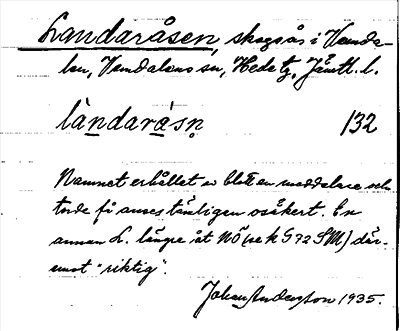 Landaråsen, skogsås i Vemda-
len, Vemdalens sn, Hede tg, Jämtl. l.
làndaråsn̥ 132
Namnet erhållet av blott en meddelare och
torde få anses tämligen osäkert. En
annan L. längre åt NÖ (se k G 72 SM) där-
emot "riktig".
Johan Andersson 1935.